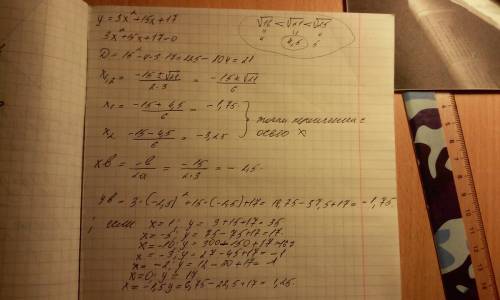 y = 3x²+15x+17
3x²+15x+17=0
D = 15² - 4·3·17 = 225 - 204 = 21
x₁,₂ = (-15±√21)/(2·3) = (-15±√21)/6
x₁ = (-15+4,5)/6 = -1,75
x₂ (-15-4,5)/6 = -3,25
точки пересечения с осью X
√16 < √21 < √25
4 4,5 5
xв = -b/2a = -15/(2·3) = -2,5
yв = 3·(-2,5)²+15·(-2,5)+17 = 18,75-37,5+17 = -1,75
если x=1; y = 3+15+17=35
x=-5; y = 75-75+17=17
x=-10; y = 300-150+17=
x=-3; y = 27-45+17=-1
x=-2; y = 12-30+17=-1
x=0; y = 17
x=-1,5 y=6,75-22,5+17=1,25.